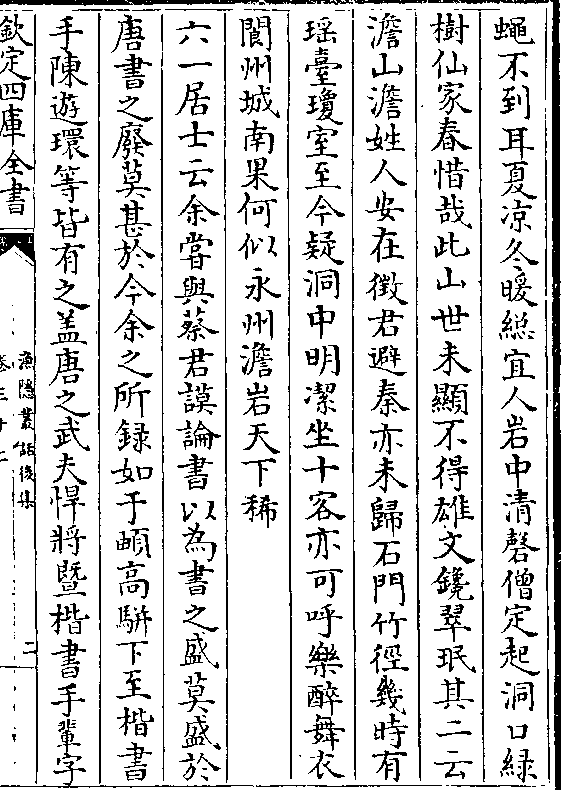 蠅不到耳夏凉冬暖總宜人岩中清磬僧定起洞口緑
樹仙家春惜哉此山世未顯不得雄文鑱翠珉其二云
澹山澹姓人安在徴君避秦亦未歸石門竹徑幾時有
瑶臺瓊室至今疑洞中明潔坐十客亦可呼樂醉舞衣
閬州城南果何似永州澹岩天下稀
六一居士云余嘗與蔡君謨論書以為書之盛莫盛於
唐書之廢莫甚於今余之所録如于頔高駢下至楷書
手陳遊環等皆有之盖唐之武夫悍將暨楷書手輩字
欽定四庫全書
漁隱叢話後集
卷三十二
二